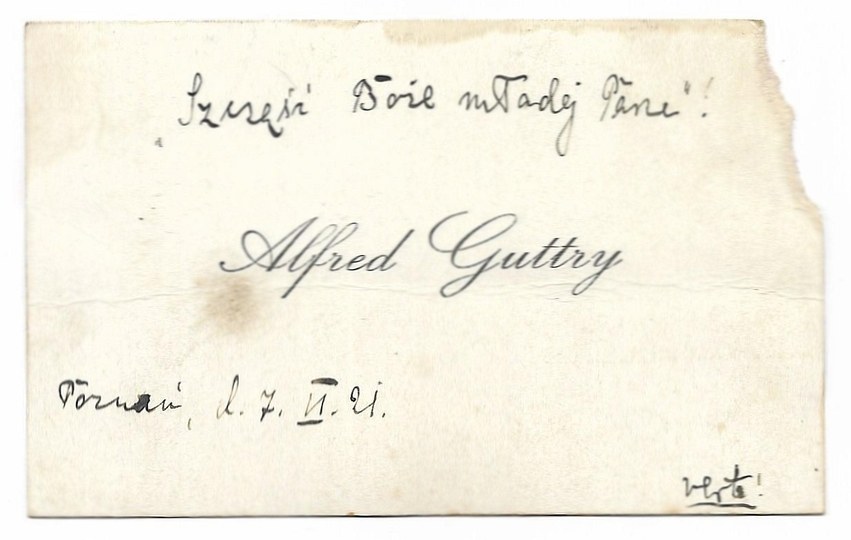 Szczęść Boże młodej Parze"!
Alfred Guttry
Poznań, d. 7. II. 21.
verte!